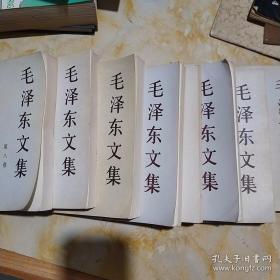 毛泽东文集
第八卷
毛泽东文集
毛泽东文集
毛泽东文集
毛泽东文集
毛泽东文集
毛
孔夫子旧书网